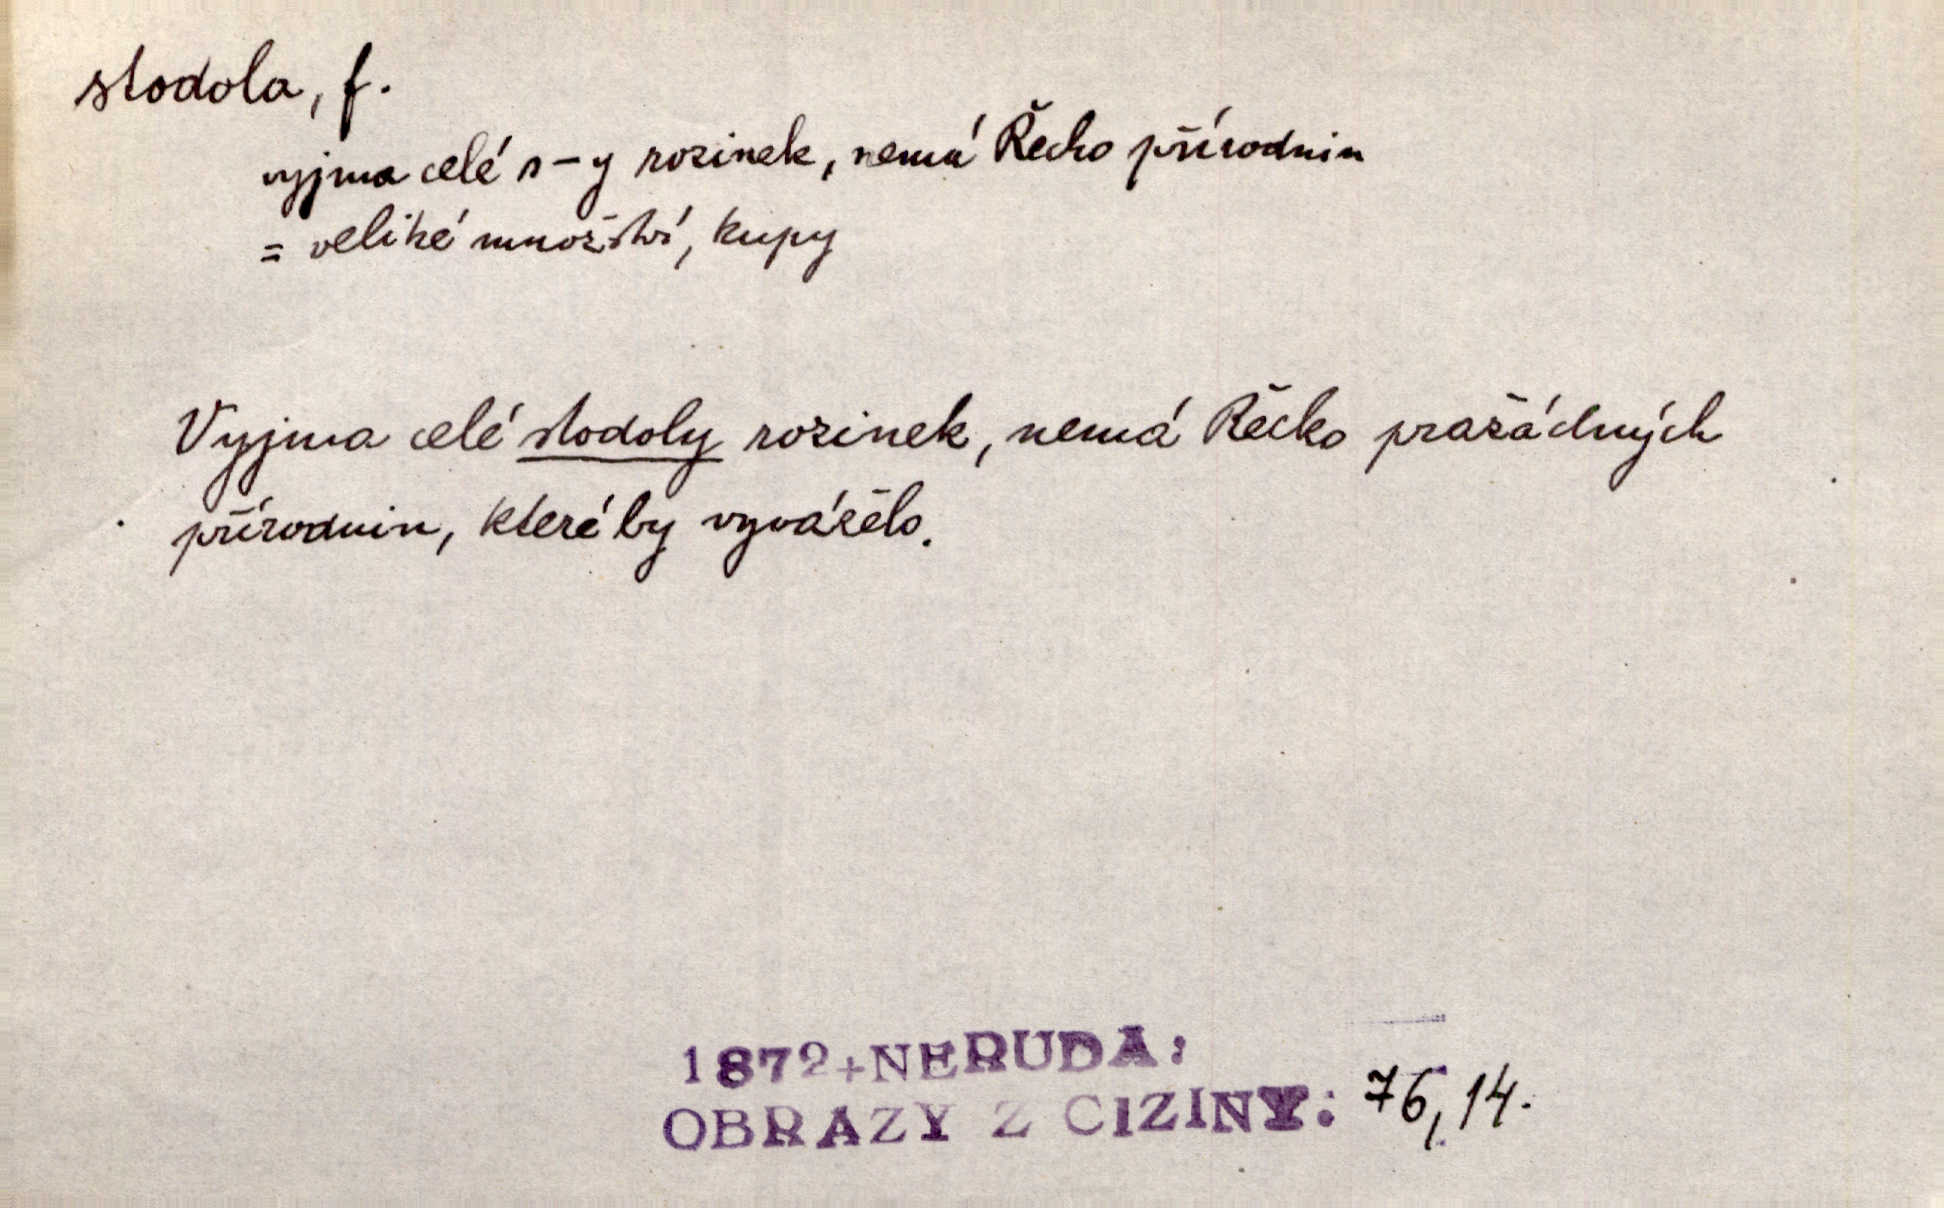 stodola, f.
vyjma celé s-y rozinek, nemá Řecko přírodnin
= veliké množství, kupy
Vyjma celé stodoly rozinek, nemá Řecko pražádných
přírodnin, které by vyváželo.
1872+NERUDA:
OBRAZY Z CIZINY: 76, 14.